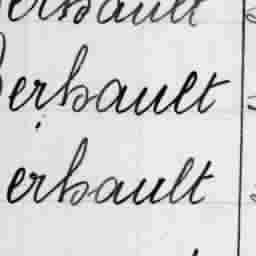 erbault
erbault
erbault